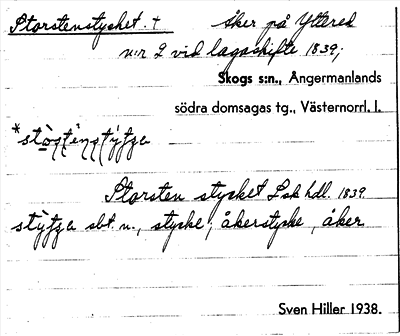 Storstenstycket. † åker på Yttered
n:r 2 vid lagaskifte 1839;
Skogs s:n., Ångermanlands
södra domsagas tg., Västernorrl. l.
Storsten stycket Lsk hdl. 1839
sbt. n., stycke, åkerstycke, åker
Sven Hiller 1938.